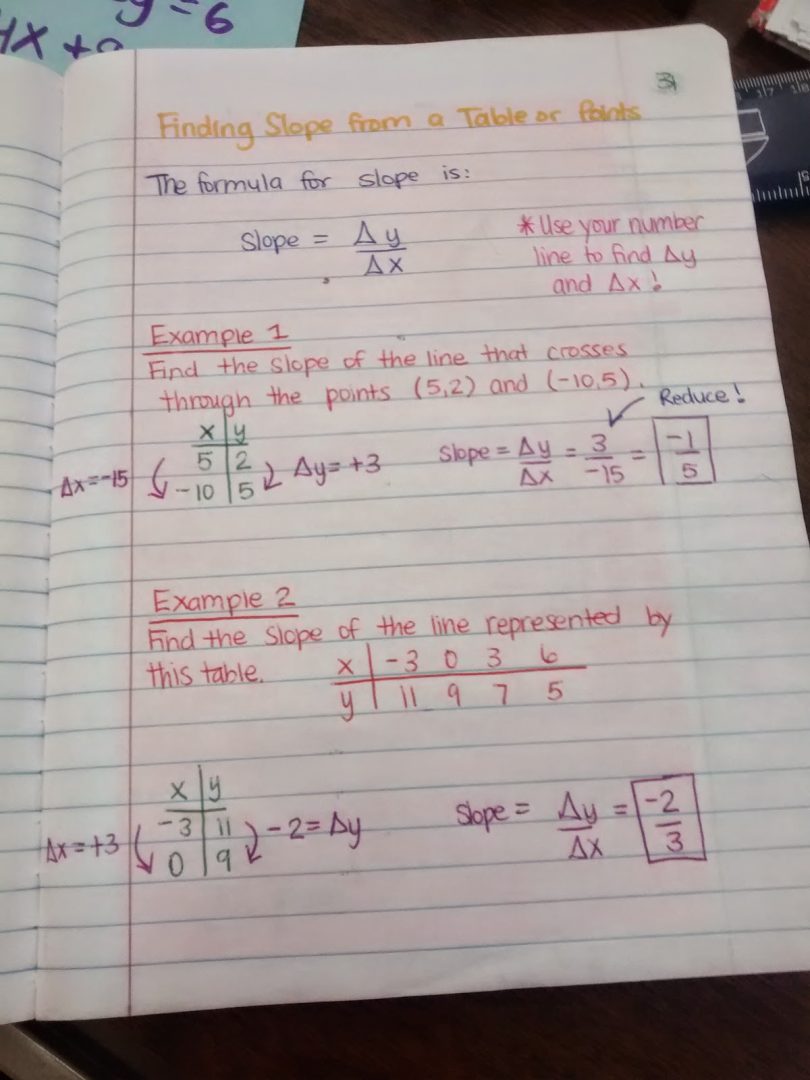 y=6
4x +
3
Finding Slope from a Table or Points
The formula for slope is:
Slope = Δy
Δx
*Use your number
line to find Δy
and Δx!
Example 1
Find the slope of the line that crosses
through the points (5,2) and (-10,5).
Reduce!
x | y
5 | 2
-10 | 5
Δx=-15
Δy=+3
Slope = Δy/Δx = 3/-15 = -1/5
Example 2
Find the slope of the line represented by
this table.
x | -3 0 3 6
y | 11 9 7 5
x | y
-3 | 11
0 | 9
Δx=+3
-2=Δy
Slope = Δy/Δx = -2/3